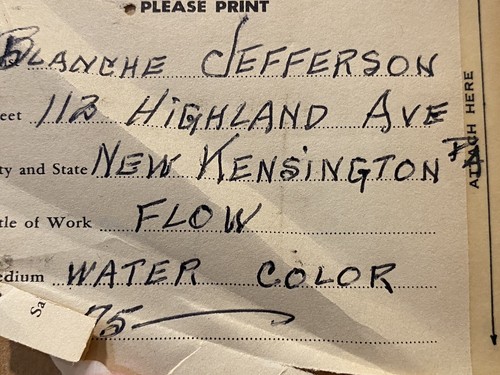 PLEASE PRINT
BLANCHE JEFFERSON
eet 112 HIGHLAND AVE
ty and State NEW KENSINGTON
tle of Work FLOW
edium WATER COLOR
Sa
75
ATTACH HERE